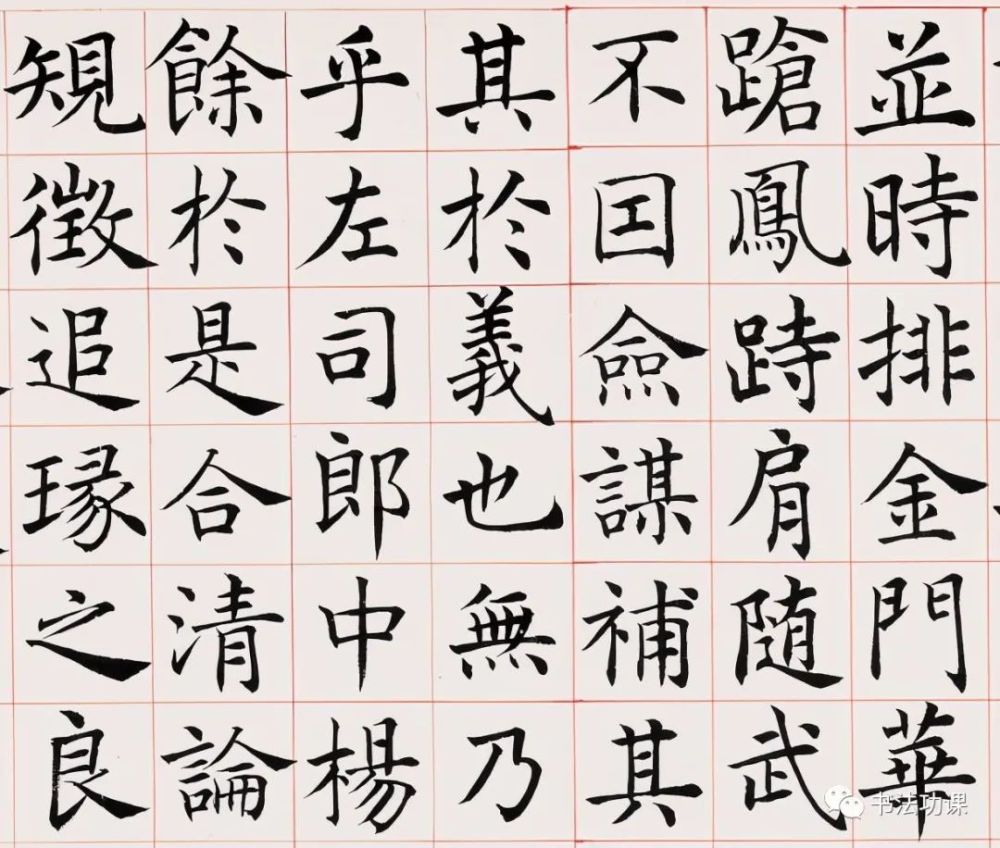 並時排金門華
蹌鳳跱肩随武
不囯僉謀補其
其於義也無乃
乎左司郎中楊
餘於是合清論
規徴追瑑之良
书法功课